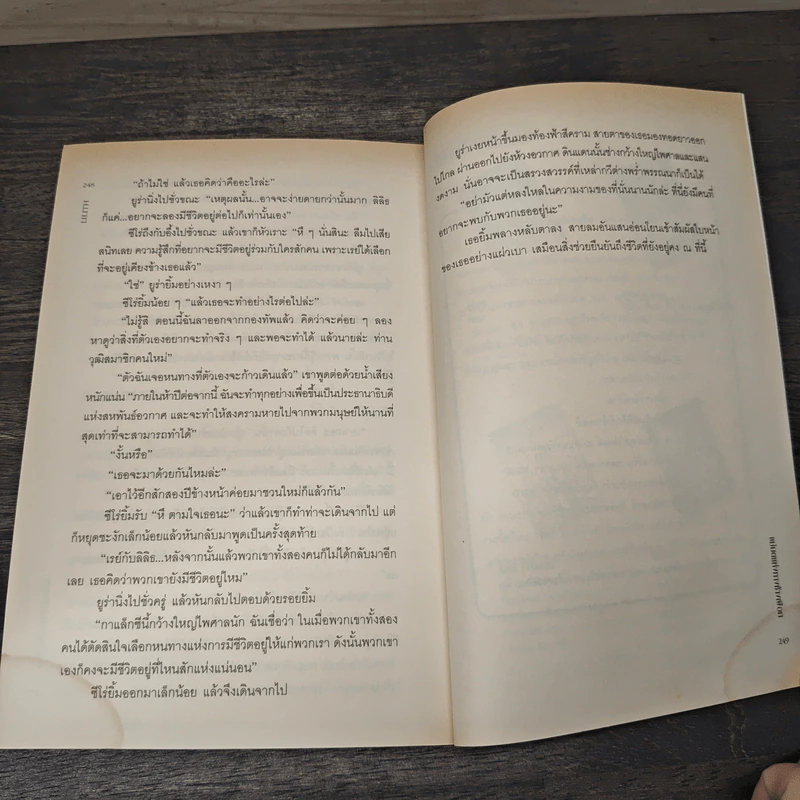 248
"ถ้าไม่ใช่ แล้วเธอคิดว่าคืออะไรล่ะ"
ยูร่านิ่งไปชั่วขณะ "เหตุผลนั้น...อาจจะง่ายดายกว่านั้นมาก ลิลิธ
ก็แค่...อยากจะลองมีชีวิตอยู่ต่อไปก็เท่านั้นเอง"
ซีโร่ถึงกับอึ้งไปชั่วขณะ แล้วเขาก็หัวเราะ "หึ ๆ นั่นสินะ ลืมไปเสีย
สนิทเลย ความรู้สึกที่อยากจะมีชีวิตอยู่ร่วมกับใครสักคน เพราะเรย์ได้เลือก
ที่จะอยู่เคียงข้างเธอแล้ว"
"ใช่" ยูร่ายิ้มอย่างเหงา ๆ
ซีโร่ยิ้มน้อย ๆ "แล้วเธอจะทำอย่างไรต่อไปล่ะ"
"ไม่รู้สิ ตอนนี้ฉันลาออกจากกองทัพแล้ว คิดว่าจะค่อย ๆ ลอง
หาดูว่าสิ่งที่ตัวเองอยากจะทำจริง ๆ และพอจะทำได้ แล้วนายล่ะ ท่าน
วุฒิสมาชิกคนใหม่"
"ตัวฉันเจอหนทางที่ตัวเองจะก้าวเดินแล้ว" เขาพูดต่อด้วยน้ำเสียง
หนักแน่น "ภายในห้าปีต่อจากนี้ ฉันจะทำทุกอย่างเพื่อขึ้นเป็นประธานาธิบดี
แห่งสหพันธ์อวกาศ และจะทำให้สงครามหายไปจากพวกมนุษย์ให้นานที่
สุดเท่าที่จะสามารถทำได้"
"งั้นหรือ"
"เธอจะมาด้วยกันไหมล่ะ"
"เอาไว้อีกสักสองปีข้างหน้าค่อยมาชวนใหม่ก็แล้วกัน"
ซีโร่ยิ้มรับ "หึ ตามใจเธอนะ" ว่าแล้วเขาก็ทำท่าจะเดินจากไป แต่
ก็หยุดชะงักเล็กน้อยแล้วหันกลับมาพูดเป็นครั้งสุดท้าย
"เรย์กับลิลิธ...หลังจากนั้นแล้วพวกเขาทั้งสองคนก็ไม่ได้กลับมาอีก
เลย เธอคิดว่าพวกเขายังมีชีวิตอยู่ไหม"
ยูร่านิ่งไปชั่วครู่ แล้วหันกลับไปตอบด้วยรอยยิ้ม
"กาแล็กซีนี้กว้างใหญ่ไพศาลนัก ฉันเชื่อว่า ในเมื่อพวกเขาทั้งสอง
คนได้ตัดสินใจเลือกหนทางแห่งการมีชีวิตอยู่ให้แก่พวกเรา ดังนั้นพวกเขา
เองก็คงจะมีชีวิตอยู่ที่ไหนสักแห่งแน่นอน"
ซีโร่ยิ้มออกมาเล็กน้อย แล้วจึงเดินจากไป
ยูร่าเงยหน้าขึ้นมองท้องฟ้าสีคราม สายตาของเธอมองทอดยาวออก
ไปไกล ผ่านออกไปยังห้วงอวกาศ ดินแดนนั้นช่างกว้างใหญ่ไพศาลและแสน
งดงาม นั่นอาจจะเป็นสรวงสวรรค์ที่เหล่ากวีต่างพร่ำพรรณนาก็เป็นได้
"อย่ามัวแต่หลงใหลในความงามของที่นั่นนานนักล่ะ ที่นี่ยังมีคนที่
อยากจะพบกับพวกเธออยู่นะ"
เธอยิ้มพลางหลับตาลง สายลมอันแสนอ่อนโยนเข้าสัมผัสใบหน้า
ของเธออย่างแผ่วเบา เสมือนสิ่งช่วยยืนยันถึงชีวิตที่ยังอยู่คง ณ ที่นี้
249